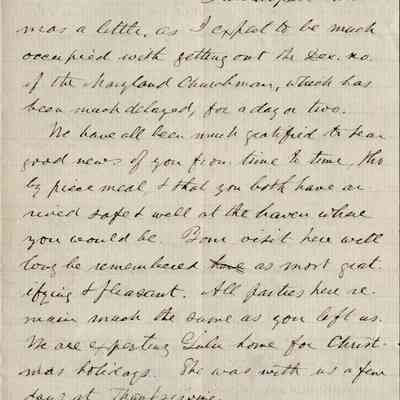 mas a little, as I expect to be much
occupied with getting out the Dec. no.
of the Maryland Churchman, which has
been much delayed, for a day or two.
We have all been much gratified to hear
good news of you from time to time, tho
by piece meal, & that you both have ar
rived safe & well at the haven where
you would be. Your visit here will
long be remembered have as most grat
ifying & pleasant. All parties here re-
main much the same as you left us.
We are expecting Lulu home for Christ-
mas holidays. She was with us a few
days at Thanksgiving